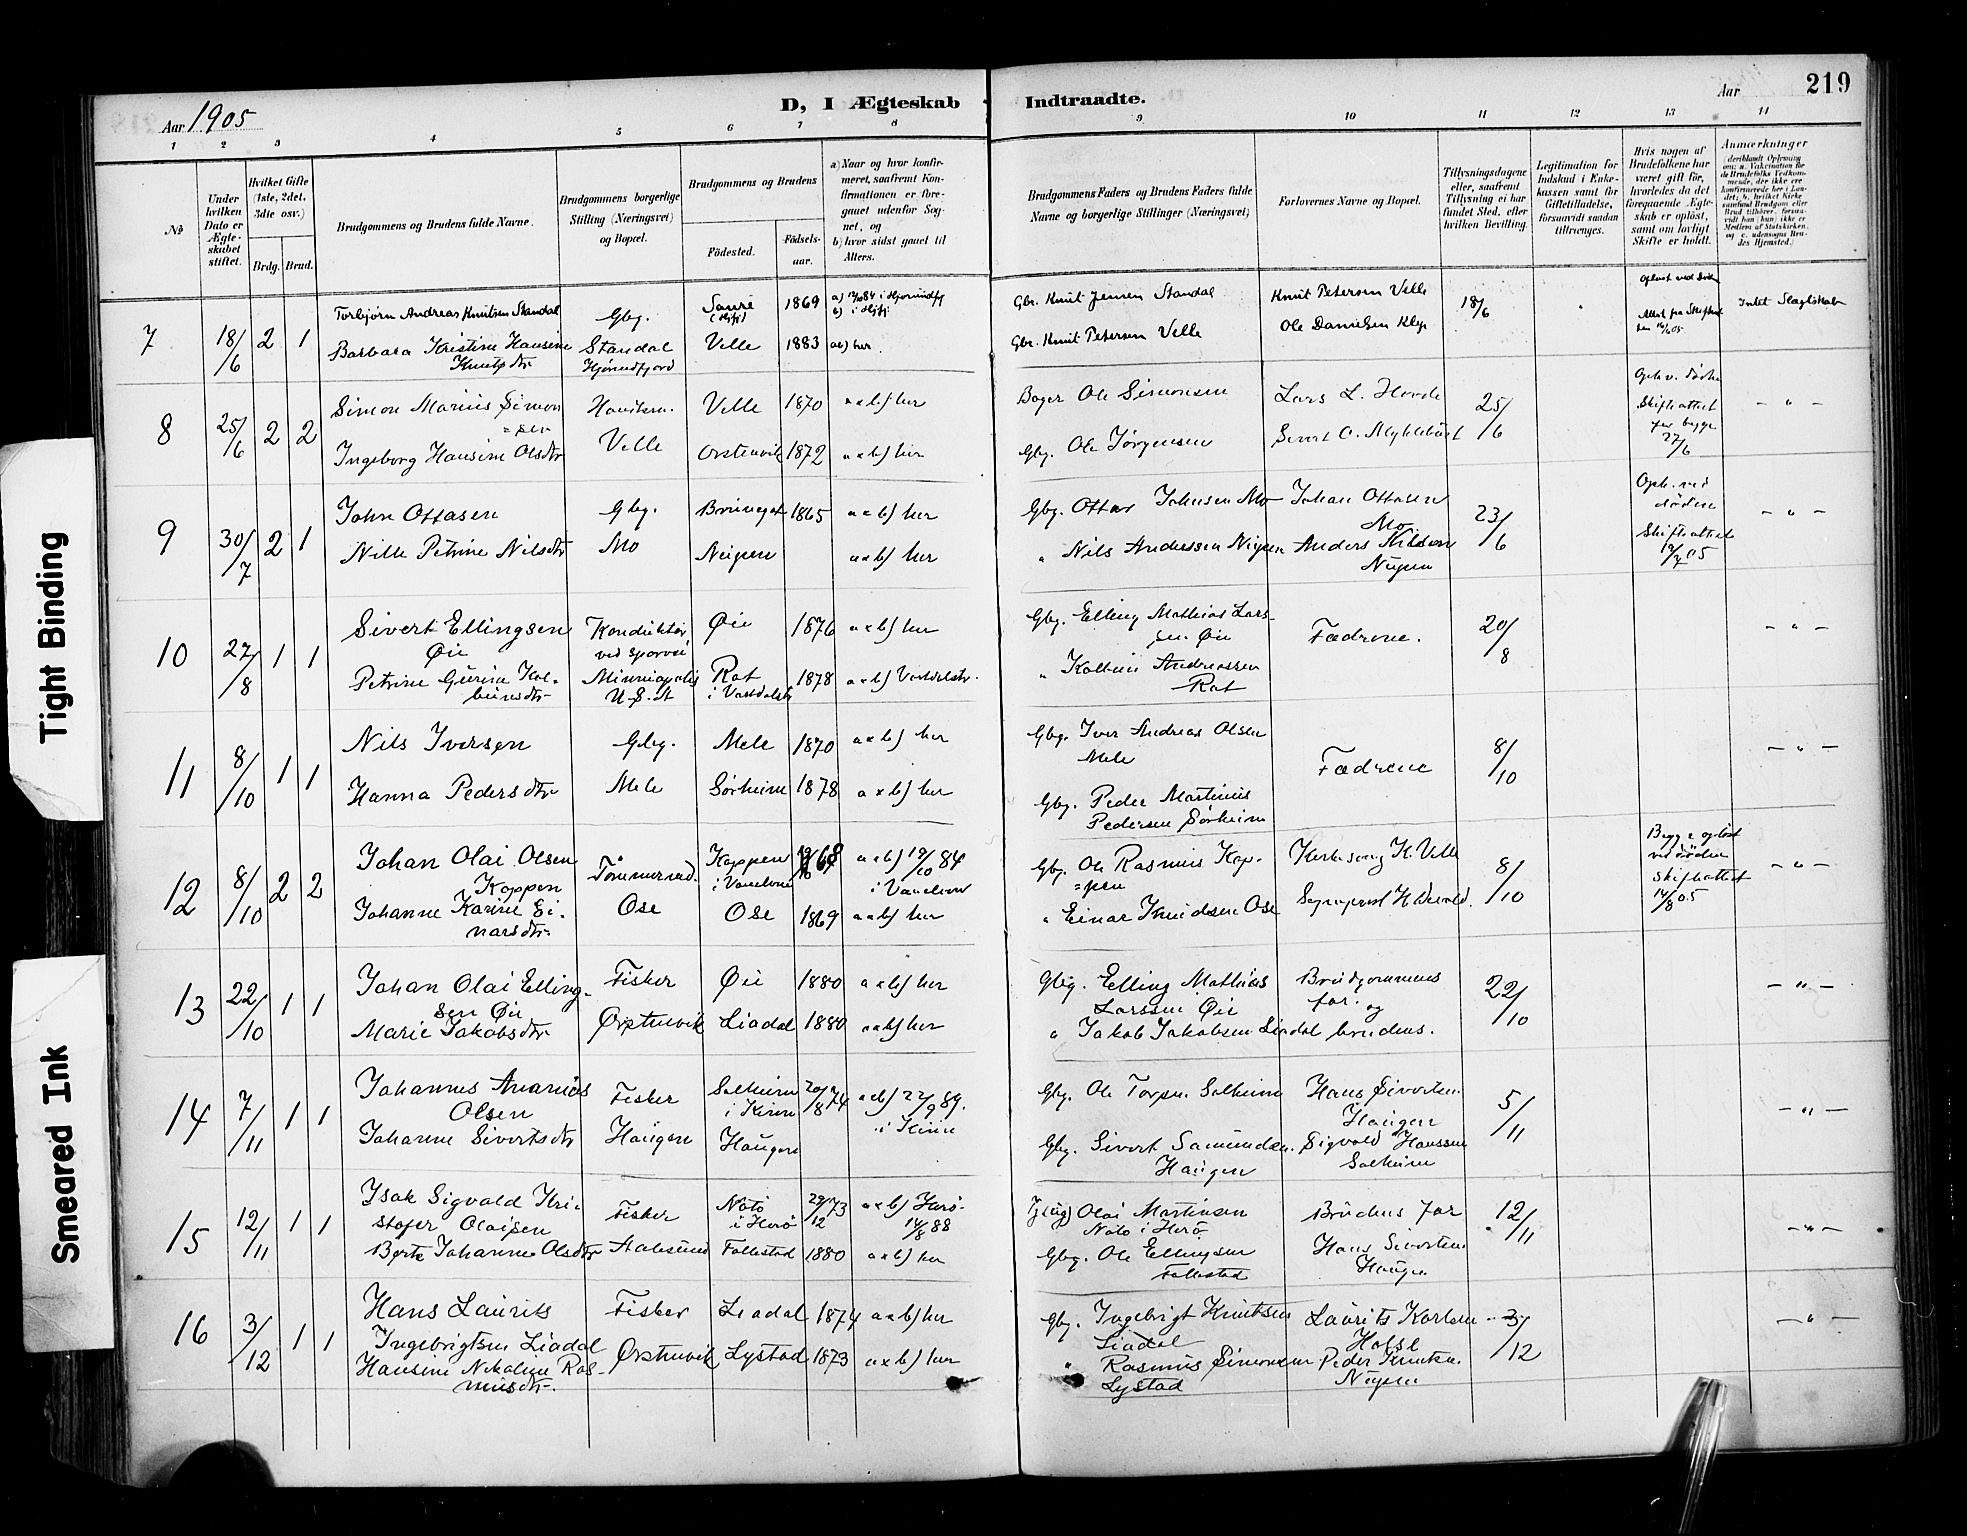 219
D, I Ægteskab Indtraadte.
Aar 1905
Aar
1 2 3 4 5 6 7 8 9 10 11 12 13 14
No
Under hvilken Dato er Ægteskabet stiftet.
Hvilket Gifte (1ste, 2det, 3die osv.)
Brdg. Brud.
Brudgommens og Brudens fulde Navne.
Brudgommens borgerlige Stilling (Næringsvei) og Bopæl.
Brudgommens og Brudens
Födested.
Födselsaar.
a) Naar og hvor konfirmeret, saafremt Konfirmationen er foregaaet udenfor Sognet, og
b) hvor sidst gaaet til Alters.
Brudgommens Faders og Brudens Faders fulde Navne og borgerlige Stillinger (Næringsvei)
Forlovernes Navne og Bopæl.
Tillysningsdagene eller, saafremt Tillysning ei har fundet Sted, efter hvilken Bevilling.
Legitimation for Indskud i Enkekassen samt for Giftetilladelse, forsaavidt saadan tiltrænges.
Hvis nogen af Brudefolkene har været gift før, hvorledes da det foregaaende Ægteskab er opløst, samt om lovligt Skifte er holdt.
Anmærkninger
7 18/6 2 1 Torbjørn Andreas Knutsen Standal Gbg. Saure (Hjfj) 1869 i Hjørundfj
Gbr. Knut Jensen Standal Knut Petersen Velle 18/6 Intet Slægtskab
Barbara Kristine Hansine Knutsdtr Standal Hjørundfjord Velle 1883 ab) her
Gbr. Knut Petersen Velle Ole Danielsen Klep
8 25/6 2 2 Simon Marius Simonsen Velle 1870 a x b) her
Ole Simonsen Lars L. Hovde 25/6 Oph. v. døden Skifteattest for begge 27/6 - " -
Ingeborg Hansine Olsdtr Velle Ørstenvik 1872 a x b) her
Gbg. Ole Jørgensen Sivert O. Myklebust
9 30/7 2 1 John Ottasen Gbg. 1865 a x b) her
Gbg. Ottar Johnsen Mo Johan Ottosen Mo 23/6 Oph. ved døden Skifteattest 05 - " -
Nille Petrine Nilsdtr Mo Nupen a x b) her
" Nils Anderssen Nupen Anders Nilsson Nupen
10 27/8 1 1 Sivert Ellingsen Øie Konduktør ved sporvei Øie 1876 a x b) her
Gbg. Elling Mathias Larssen Øie Fædrene. 20/8 - " -
Petrine Gurina Kolbeinsdtr Minniapolis U.S.A Rot i Vartdalstr 1878 a x b) Vartdalstr.
" Kolbein Andreassen Rot
11 8/10 1 1 Nils Iversen Gbg. Mele 1870 a x b) her
Gbg. Iver Andreas Olsen Mele Fædrene 8/10 - " -
Hanna Pedersdtr Mele Sørheim 1878 a x b) her
Gbg. Peder Martinus Pedersen Sørheim
12 8/10 2 2 Johan Olai Olsen Koppen Tømmermd. Koppen i Vanelven 68 a x b) 19/10 84 i Vanelven
Gbg. Ole Rasmus Koppen Kirkesang. K. Velle 8/10 Begge opløst ved døden Skifteattest 14/8 05 - " -
Johanne Karine Einarsdtr Ose Ose 1869 a x b) her
" Einar Knudsen Ose
13 22/10 1 1 Johan Olai Ellingsen Øie Fisker Øie 1880 a x b) her
Gbg. Elling Mathias Larssen Øie Brudgommens far og 22/10 - " -
Marie Jakobsdtr Ørstenvik Liadal 1880 a x b) her
" Jakob Jakobsen Liadal brudens.
14 7/11 1 1 Johannes Ananias Olsen Fisker Solheim i Kinn 20/8 74 a x b) 22/9 89. i Kinn
Gbg. Ole Solheim Hans Sivertsen Haugen 5/11 - " -
Johanne Sivertsdtr Haugen Haugen
Gbg. Sivert Samundsen Haugen Sigvald Hanssen Solheim
15 12/11 1 1 Isak Sigvald Kristofer Olaisen Fisker Nôtô i Herö 29/12 73 a x b) Herö 14/8 88
Olai Martinsen Nôtô i Herö Brudens far 12/11 - " -
Berte Johanne Olsdtr Aalesund Follestad 1880 a x b) her
Gbg. Ole Ellingsen Follestad Hans Sivertsen Haugen
16 3/12 1 1 Hans Laurits Ingebrigtsen Liadal Fisker Liadal 1874 a x b) her
Gbg. Ingebrigt Knutsen Liadal Laurits Karlsen 3/12 - " -
Hansine Nikoline Rasmusdtr. Ørstenvik Lystad 1873 a x b) her
" Rasmus Simonsen Lystad Peder Knutsen Nupen
Tight Binding
Smeared Ink